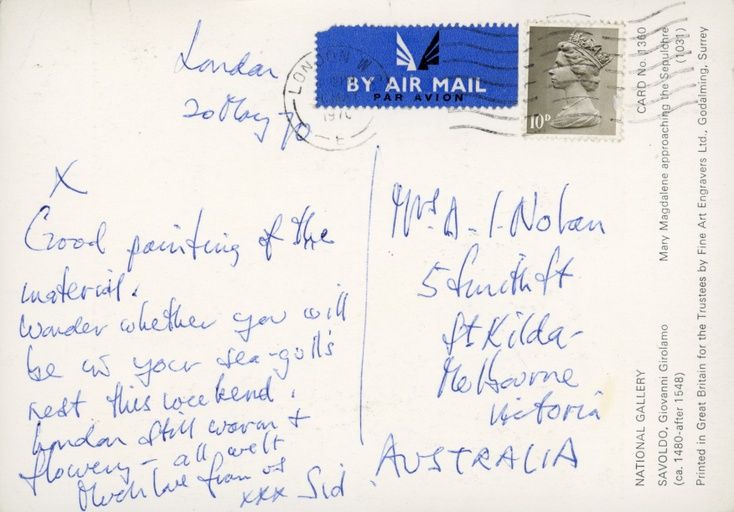 London
20 May 70
LONDON W.
1970
BY AIR MAIL
PAR AVION
10D
X
Good painting of the
material.
Wonder whether you will
be in your sea-gull's
nest this weekend.
London still warm +
flowery - all well
Much love from us
xxx Sid
Mrs A. I. Nolan
5 Smith St
St Kilda-
Melbourne
Victoria
AUSTRALIA
NATIONAL GALLERY CARD No. 1360
SAVOLDO, Giovanni Girolamo Mary Magdalene approaching the Sepulchre
(ca. 1480-after 1548) (1031)
Printed in Great Britain for the Trustees by Fine Art Engravers Ltd., Godalming, Surrey